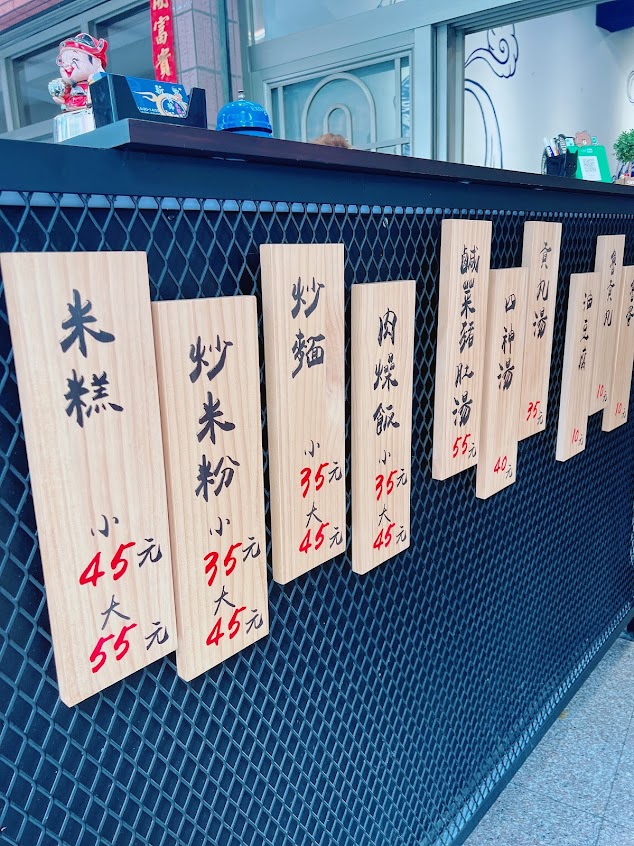 富貴
米糕
小
45元
大
55元
炒米粉
小
35元
大
45元
炒麵
小
35元
大
45元
肉燥飯
小
35元
大
45元
鹹菜豬肚湯
55元
四神湯
40元
貢丸湯
35元
油豆腐
10元
魯貢丸
10元
10元